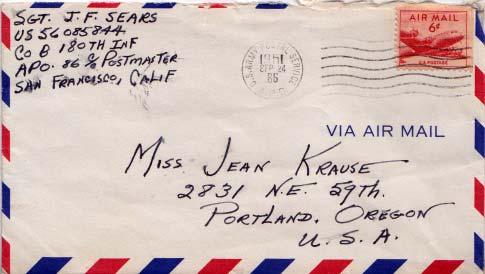 SGT. J.F. SEARS
US 56085844
CO B 180TH INF
APO. 86 c/o POSTMASTER
SAN FRANCISCO, CALIF
U.S. ARMY POSTAL SERVICE
1951
SEP 24
86
A.P.O.
AIR MAIL
6¢
U.S. POSTAGE
VIA AIR MAIL
MISS JEAN KRAUSE
2831 N.E. 59th.
PORTLAND, OREGON
U.S.A.